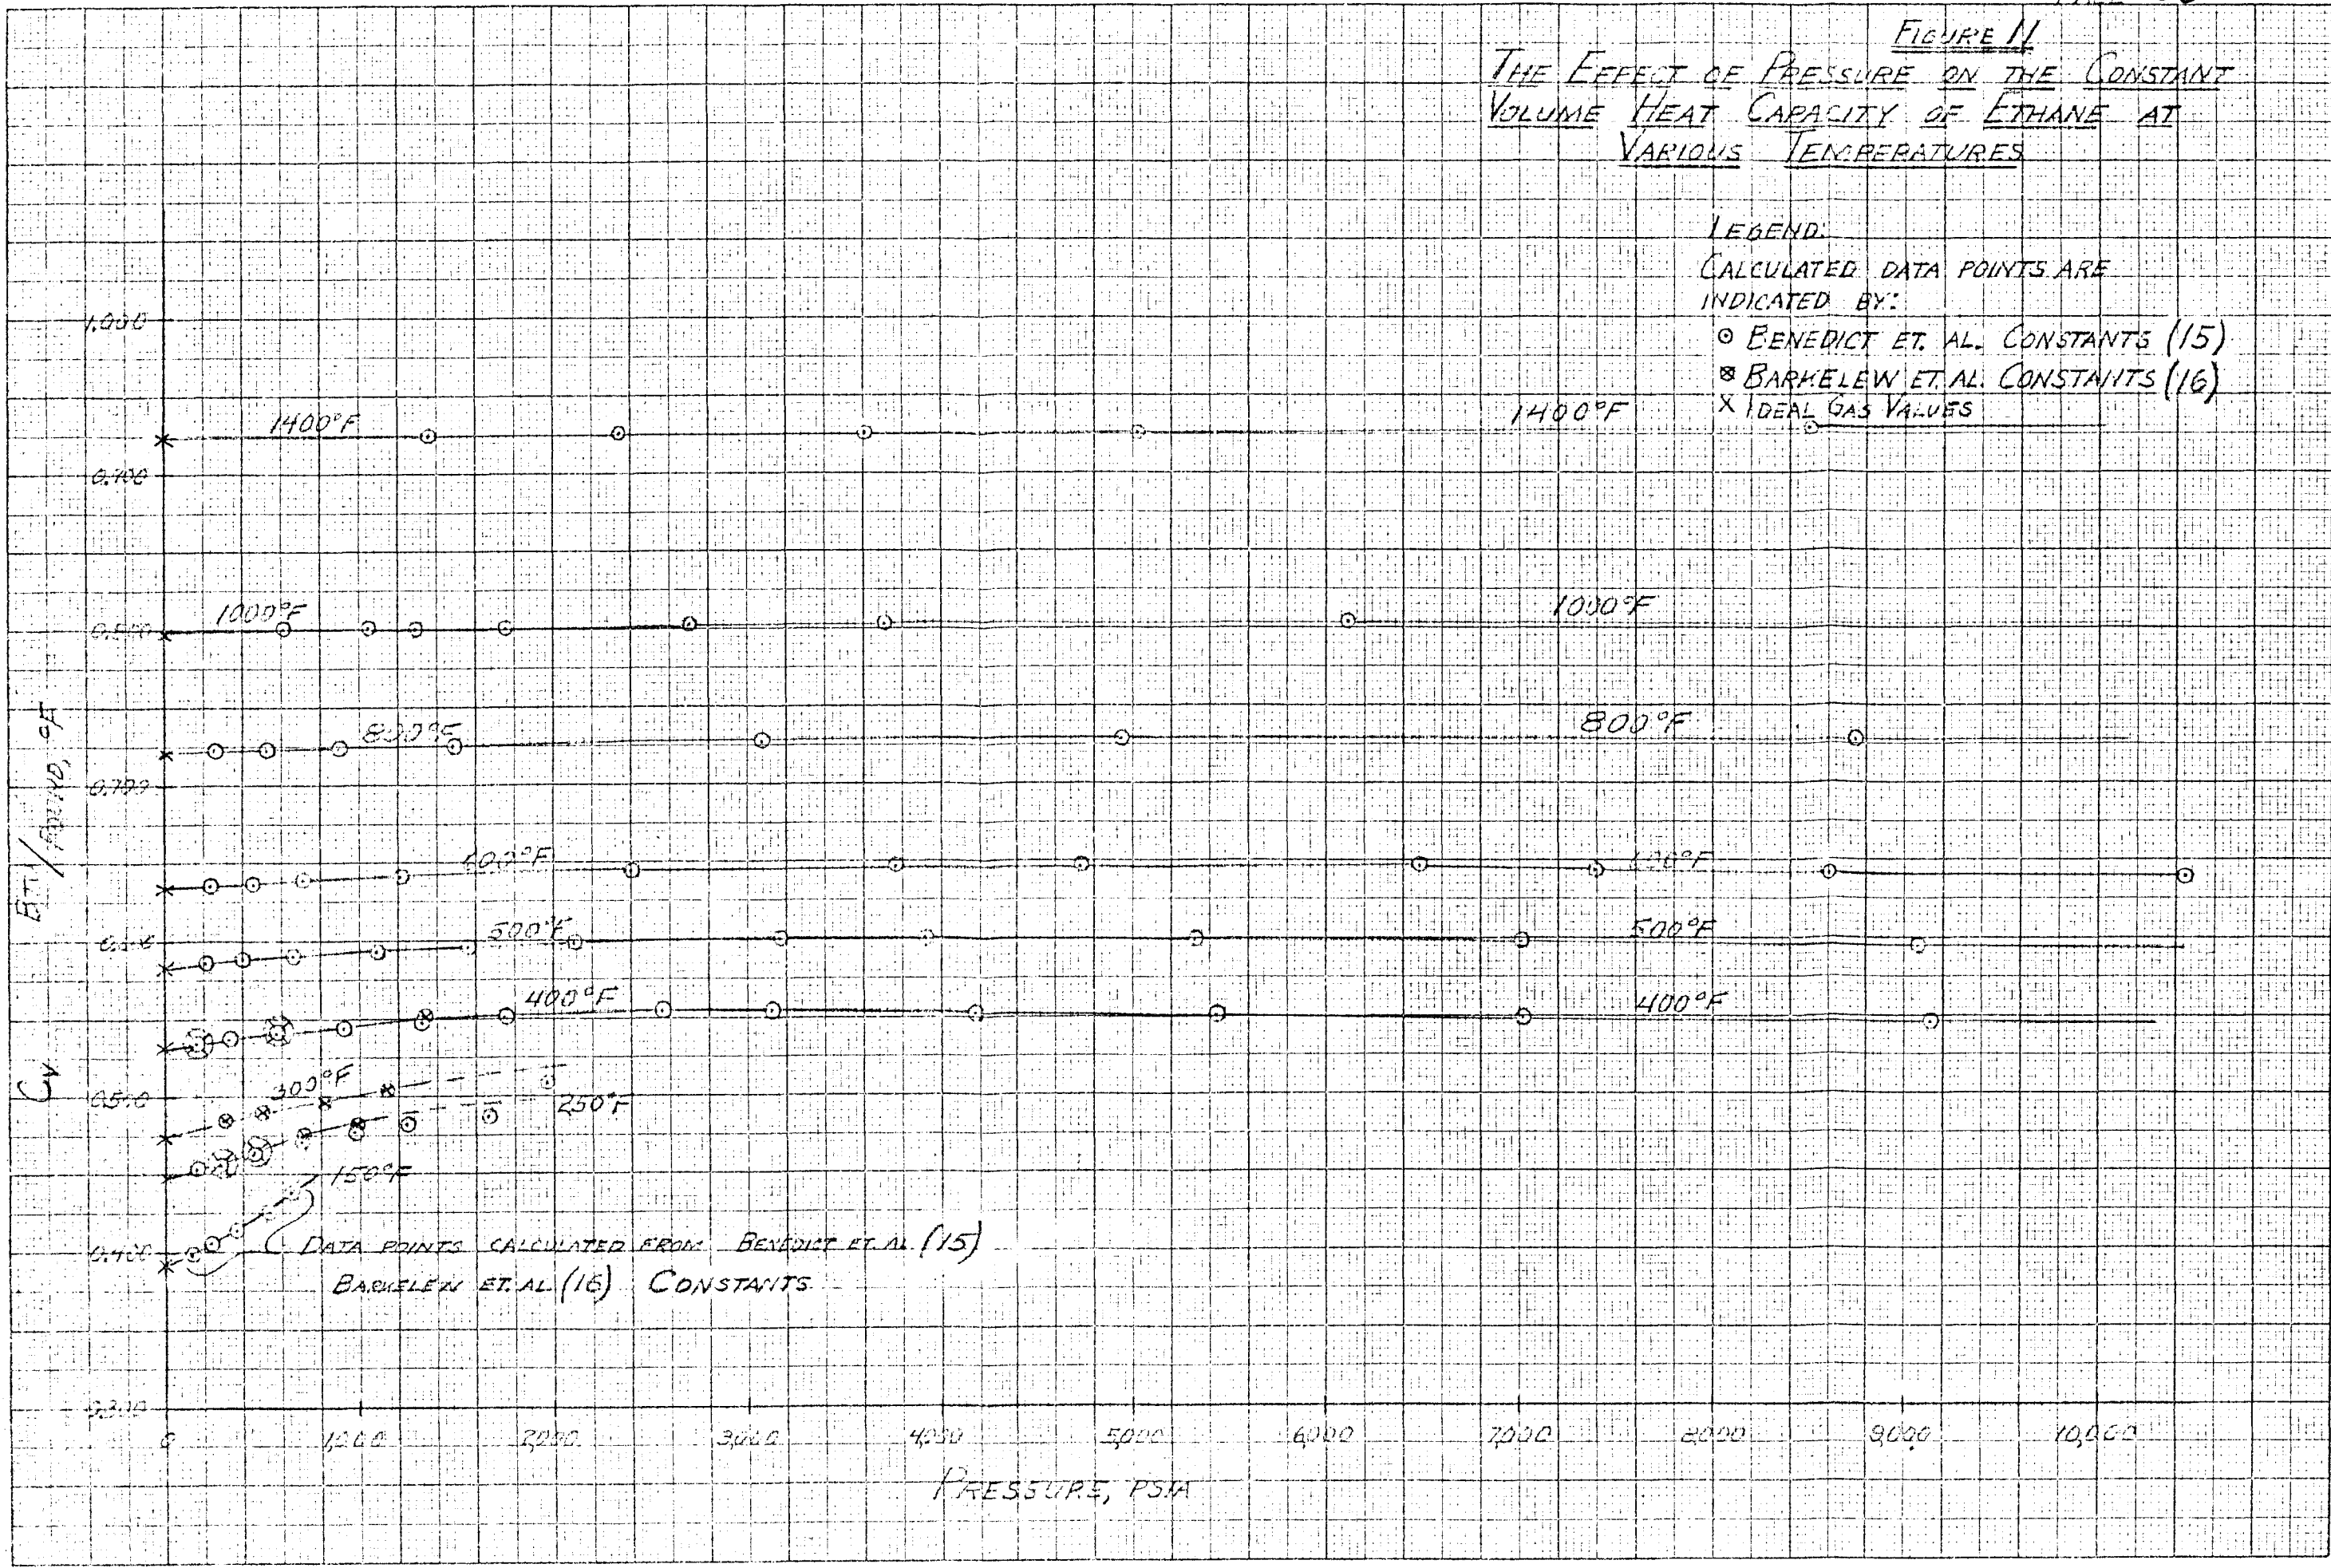 FIGURE 11
THE EFFECT OF PRESSURE ON THE CONSTANT
VOLUME HEAT CAPACITY OF ETHANE AT
VARIOUS TEMPERATURES
LEGEND:
CALCULATED DATA POINTS ARE
INDICATED BY:
⊙ BENEDICT ET. AL. CONSTANTS (15)
⊗ BARKELEW ET. AL. CONSTANTS (16)
X IDEAL GAS VALUES
1.000
1400°F
1400°F
1000°F
1000°F
800°F
800°F
BTU/POUND, °F
600°F
500°F
500°F
400°F
400°F
CV
300°F
0.500
250°F
150°F
0.400
DATA POINTS CALCULATED FROM BENEDICT ET. AL (15)
BARKELEW ET. AL (16) CONSTANTS
0.300
0 1,000 2,000 3,000 4,000 5,000 6,000 7,000 8,000 9,000 10,000
PRESSURE, PSIA